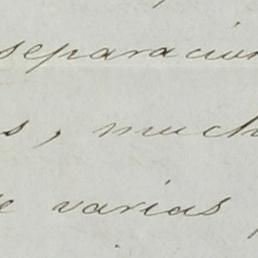 separacion
s, much
e varias